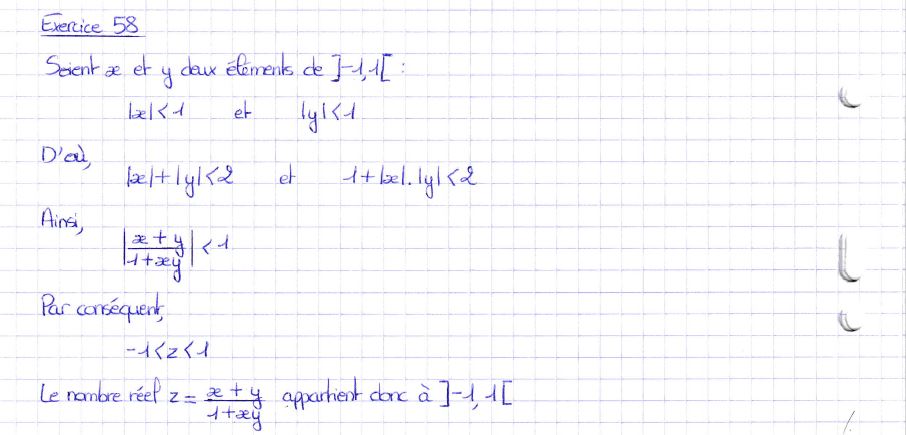 Exercice 58
Soient x et y deux éléments de ]-1,1[ :
|x|<1 et |y|<1
D'où,
|x|+|y|<2 et 1+|x|.|y|<2
Ainsi,
|x + y / 1+xy| < 1
Par conséquent,
-1<z<1
Le nombre réel z = x + y / 1+xy appartient donc à ]-1, 1[